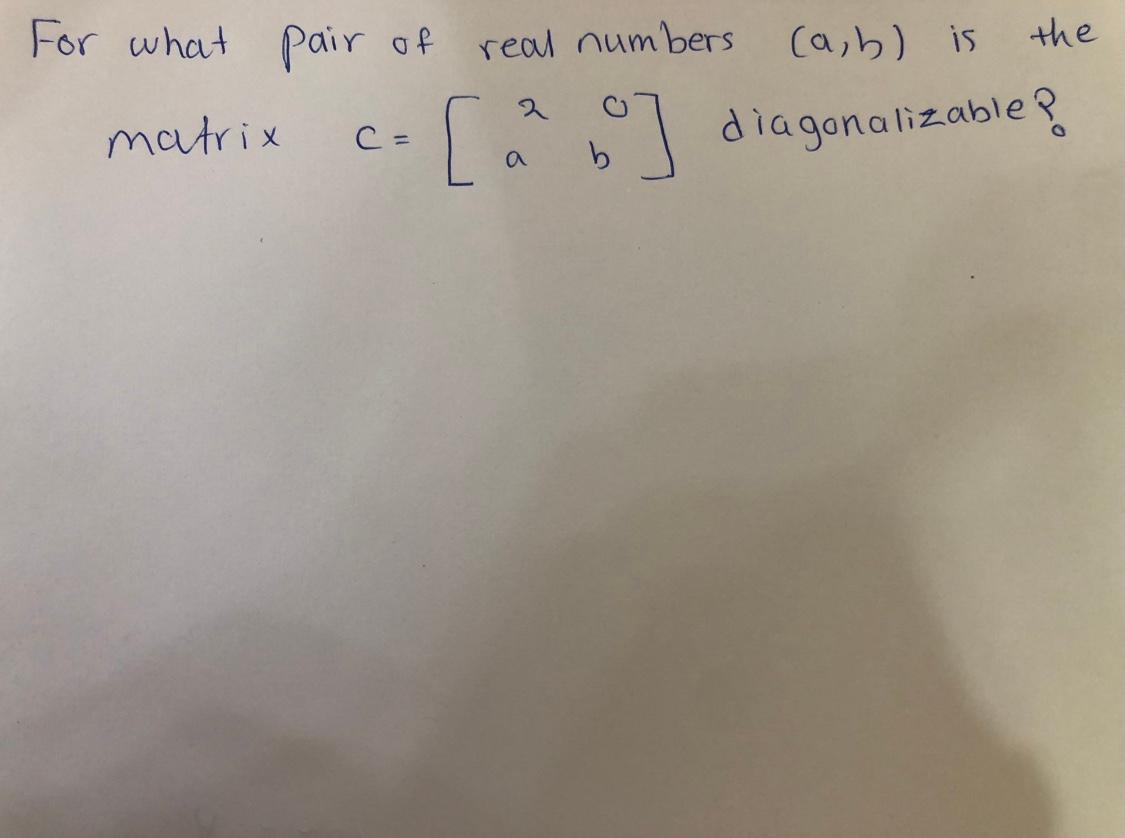 For what pair of real numbers (a,b) is the
matrix C = [ 2 0 ; a b ] diagonalizable?